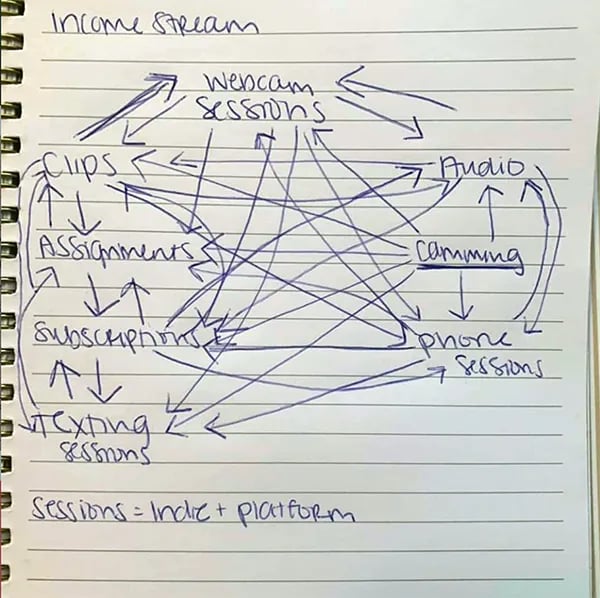 Income Stream
Webcam
Sessions
Clips
Audio
Assignments
Camming
Subscriptions
phone
sessions
Texting
sessions
Sessions = Indie + platform